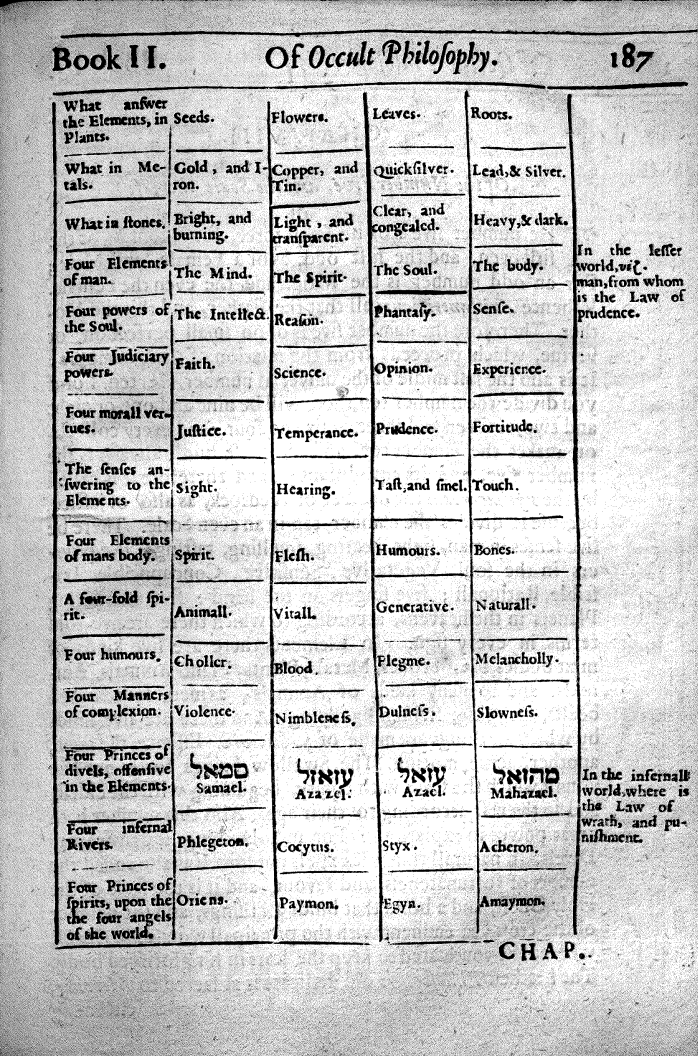 Book II. Of Occult Philoſophy. 187
What anſwer
the Elements, in
Plants.
Seeds.
Flowers.
Leaves.
Roots.
What in Me-
tals.
Gold, and I-
ron.
Copper, and
Tin.
Quickſilver.
Lead,& Silver.
What in ſtones.
Bright, and
burning.
Light, and
tranſparent.
Clear, and
congealed.
Heavy,& dark.
Four Elements
of man.
The Mind.
The Spirit.
The Soul.
The body.
In the leſſer
world, viz.
man, from whom
is the Law of
prudence.
Four powers of
the Soul.
The Intellect.
Reaſon.
Phantaſy.
Senſe.
Four Judiciary
powers.
Faith.
Science.
Opinion.
Experience.
Four morall ver-
tues.
Juſtice.
Temperance.
Prudence.
Fortitude.
The ſenſes an-
ſwering to the
Elements.
Sight.
Hearing.
Taſt, and ſmel.
Touch.
Four Elements
of mans body.
Spirit.
Fleſh.
Humours.
Bones.
A four-fold ſpi-
rit.
Animall.
Vitall.
Generative.
Naturall.
Four humours.
Choller.
Blood.
Flegme.
Melancholly.
Four Manners
of complexion.
Violence.
Nimbleneſs.
Dulneſs.
Slowneſs.
Four Princes of
divels, offenſive
in the Elements.
סמאל
Samael.
עזאזל
Azazel.
עזאל
Azael.
מהזאל
Mahazael.
In the infernall
world, where is
the Law of
wrath, and pu-
niſhment.
Four infernal
Rivers.
Phlegeton.
Cocytus.
Styx.
Acheron.
Four Princes of
ſpirits, upon the
the four angels
of the world.
Oriens.
Paymon.
Egyn.
Amaymon.
CHAP.